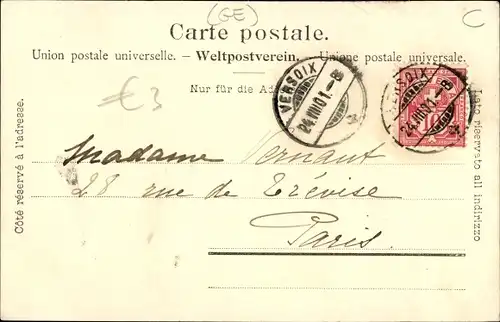 (GE)
C
Carte postale.
Union postale universelle. – Weltpostverein. – Unione postale universale.
Nur für die Ad
€3
VERSOIX
24.VIII.01.-8
VERSOIX
24.VIII.01.-8
10
Côté réservé à l'adresse.
Lato riservato all indirizzo
Madame Vernant
28 rue de Trévise
Paris.